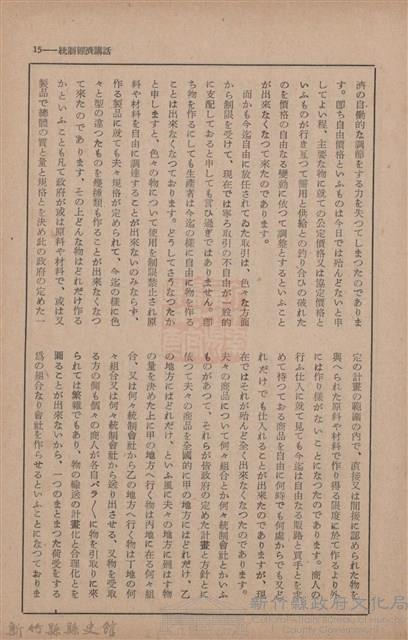 15——統制經濟講話
濟の自働的な調節をする力を失つてしまつたのでありま
す。即ち自由價格といふものは今日では殆んどないと申
してよい程、主要な物に就ての公定價格又は協定價格と
いふものが行き亙つて需用と供給との釣り合ひの破れた
のを價格の自由なる變動に依つて調整とするといふこと
が出來なくなつて來たのであります。
而かも今迄自由に放任されてゐた取引は、色々な方面
から制限を受けて、現在では寧ろ取引の不自由が一般的
に支配しておると申しても言ひ過ぎではありません。即
ち物を作るにしても生產者は今迄の樣に自由に物を作る
ことは出來なくなつております。どうしてさうなつたか
と申しますと、色々の物について使用を制限禁止され原
料や材料を自由に調達することが出來ないのみならず、
作る製品に就ても夫々規格が定められて、今迄の樣に色
々と型の違つたものを幾種類も作ることが出來なくなつ
て來たのであります、その上どんな物はどれだけ作る
かといふことも凡て政府が或は原料や材料で、或は又
製品で總體の質と量と規格とを決め此の政府の定めた一
定の計畫の範圍の內で、直接又は間接に認められた物を
與へられた原料や材料で作り得る限度に於て作るより外
には作り樣がないことになつたのであります。商人の
行ふ仕入に就て見ても今迄は自由なる販路と買手とを求
めて持つておる商品を自由に何時でも何處からでも又ど
れだけでも仕入れることが出來たのでありますが、現
在ではそれが殆んど全く出來なくなつたのであります。
夫々の商品について何々組合とか何々統制會社とかいふ
ものがあつて、それらが皆政府の定めた計畫と方針とに
依つて夫々の商品を全國的に甲の地方にはどれだけ、乙
の地方にはどれだけ、といふ風に夫々の地方に廻はす物
の量を決めた上に甲の地方へ行く物は丙地に在る何々組
合、又は何々統制會社から乙の地方へ行く物は丁地の何
々組合又は何々統制會社から送り出させる、又物を受取
る方の側も個々の商人が各自バラ〱に物を引取りに來
られては繁雜でもあり、物の輸送の計畫化と合理化とを
圖ることが出來ないから、一つのまとまつた荷受をする
爲の組合なり會社を作らせるといふことになつておりま
新竹縣縣史館
新竹縣政府文化局
Cultural Affairs Bureau of Hsinchu County